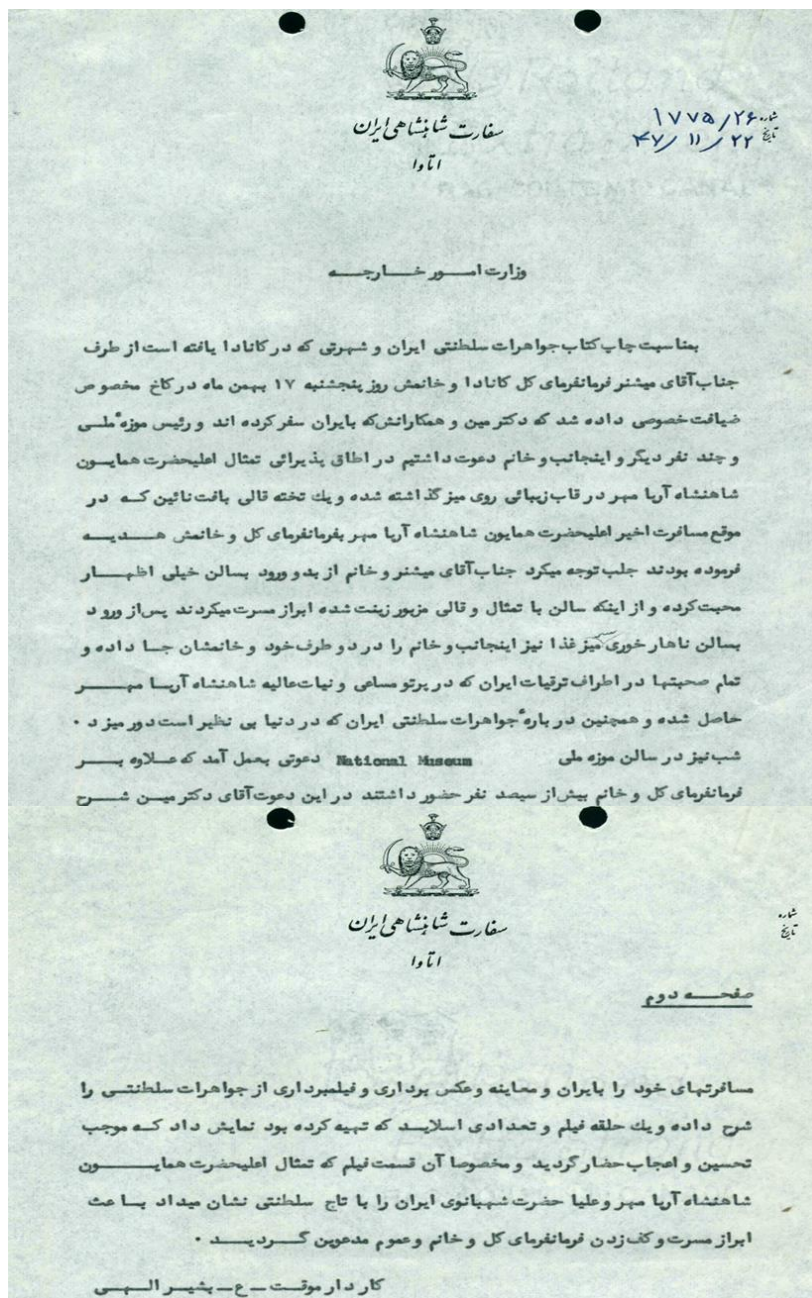 سفارت شاهنشاهی ایران
اتاوا
شماره ۱۷۷۵/۲۶
تاریخ ۴۷/۱۱/۲۲
وزارت امور خارجه
بمناسبت چاپ کتاب جواهرات سلطنتی ایران و شهرتی که در کانادا یافته است از طرف
جناب آقای میشنر فرمانفرمای کل کانادا و خانمش روز پنجشنبه ۱۷ بهمن ماه در کاخ مخصوص
ضیافت خصوصی داده شد که دکتر مین و همکارانش که بایران سفر کرده اند و رئیس موزهٔ ملی
و چند نفر دیگر و اینجانب و خانم دعوت داشتیم در اطاق پذیرائی تمثال اعلیحضرت همایون
شاهنشاه آریا مهر در قاب زیبائی روی میز گذاشته شده و یك تخته قالی بافت نائین که در
موقع مسافرت اخیر اعلیحضرت همایون شاهنشاه آریا مهر بفرمانفرمای کل و خانمش هدیه
فرموده بودند جلب توجه میکرد جناب آقای میشنر و خانم از بدو ورود بسالن خیلی اظهار
محبت کرده و از اینکه سالن با تمثال و قالی مزبور زینت شده ابراز مسرت میکردند پس از ورود
بسالن ناهار خوری میز غذا نیز اینجانب و خانم را در دو طرف خود و خانمشان جا داده و
تمام صحبتها در اطراف ترقیات ایران که در پرتو مساعی و نیات عالیه شاهنشاه آریا مهر
حاصل شده و همچنین در بارهٔ جواهرات سلطنتی ایران که در دنیا بی نظیر است دور میزد .
شب نیز در سالن موزه ملی National Museum دعوتی بعمل آمد که علاوه بر
فرمانفرمای کل و خانم بیش از سیصد نفر حضور داشتند در این دعوت آقای دکتر مین شرح
سفارت شاهنشاهی ایران
اتاوا
شماره
تاریخ
صفحه دوم
مسافرتهای خود را بایران و معاینه و عکس برداری و فیلمبرداری از جواهرات سلطنتی را
شرح داده و یك حلقه فیلم و تعدادی اسلاید که تهیه کرده بود نمایش داد که موجب
تحسین و اعجاب حضار گردید و مخصوصا آن قسمت فیلم که تمثال اعلیحضرت همایون
شاهنشاه آریا مهر و علیا حضرت شهبانوی ایران را با تاج سلطنتی نشان میداد باعث
ابراز مسرت و کف زدن فرمانفرمای کل و خانم و عموم مدعوین گردید .
کاردار موقت - ع - بشیر الهی